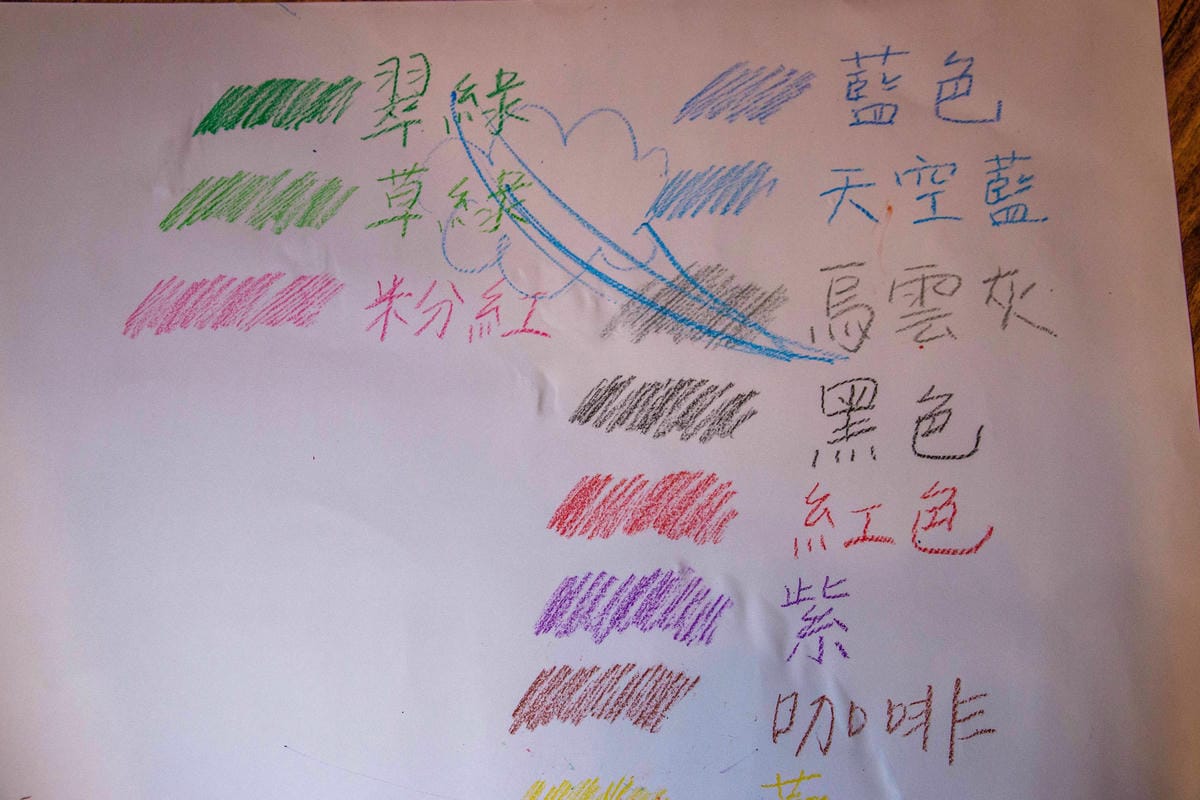 翠綠
草綠
粉紅
藍色
天空藍
烏雲灰
黑色
紅色
紫
咖啡